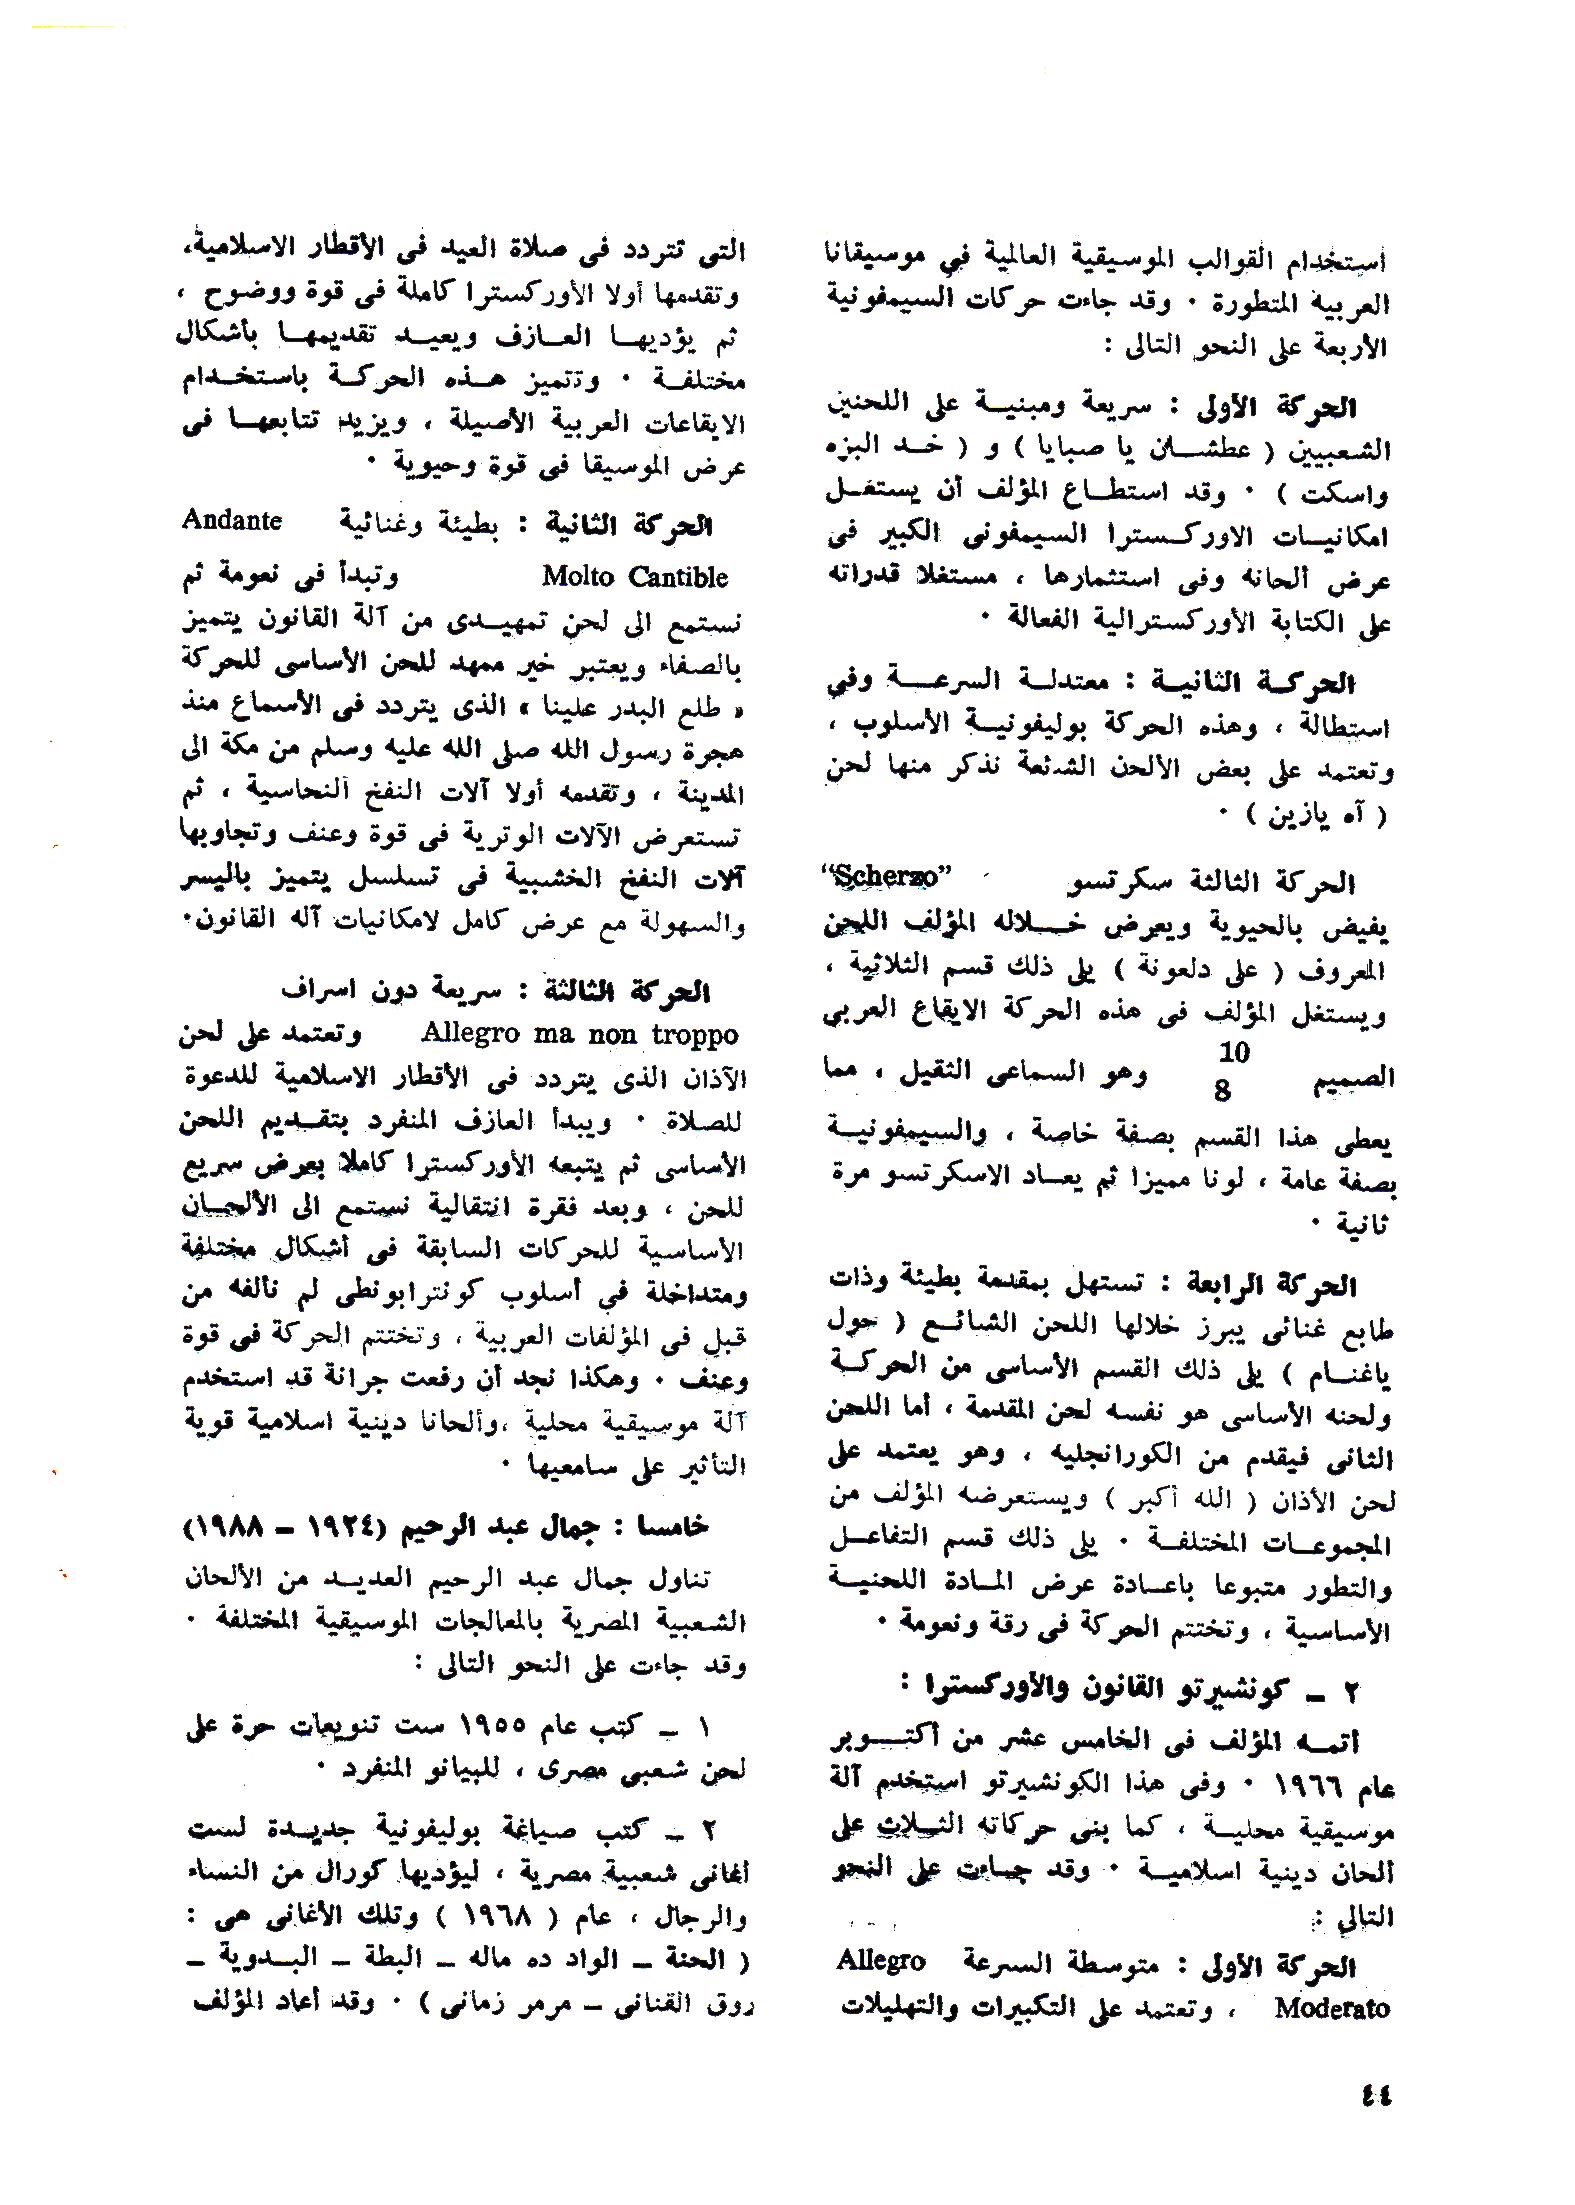 استخدام القوالب الموسيقية العالمية في موسيقانا
العربية المتطورة ٠ وقد جاءت حركات السيمفونية
الأربعة على النحو التالى :
الحركة الأولى : سريعة ومبنيـة على اللحنين
الشعبيين ( عطشـان يا صبايا ) و ( خـد البزه
واسكت ) ٠ وقد استطـاع المؤلف أن يستغـل
امكانيـات الاوركـسترا السيمفونى الكبير فى
عرض ألحانه وفى استثمارها ، مستغلا قدراته
على الكتابة الأوركسترالية الفعالة ٠
الحركـة الثانيـة : معتدلـة السرعـة وفى
استطالة ، وهذه الحركة بوليفونيـة الأسلوب ،
وتعتمد على بعض الألحن الشئعة نذكر منها لحن
( آه يازين ) ٠
الحركة الثالثة سكرتسو “Scherzo”
يفيض بالحيوية ويعرض خـلاله المؤلف اللحن
المعروف ( على دلعونة ) يلى ذلك قسم الثلاثية ،
ويستغل المؤلف فى هذه الحركة الايقاع العربى
الصميم 10/8 وهو السماعى الثقيل ، مما
يعطى هذا القسم بصفة خاصة ، والسيمفونيـة
بصفة عامة ، لونا مميزا ثم يعـاد الاسكرتسو مرة
ثانية ٠
الحركة الرابعة : تستهل بمقدمة بطيئة وذات
طابع غنائى يبرز خلالها اللحن الشائـع ( حول
ياغنـام ) يلى ذلك القسم الأساسى من الحركـة
ولحنه الأساسى هو نفسه لحن المقدمة ، أما اللحن
الثانى فيقدم من الكورانجليه ، وهو يعتمد على
لحن الأذان ( الله أكبر ) ويستعرضه المؤلف من
المجموعـات المختلفـة ٠ يلى ذلك قسم التفاعـل
والتطور متبوعا باعـادة عرض المـادة اللحنيـة
الأساسية ، وتختتم الحركة فى رقة ونعومة ٠
٢ ــ كونشيرتو القانون والأوركسترا :
أتمـه المؤلف فى الخامس عشر من أكتـوبر
عام ١٩٦٦ ٠ وفى هذا الكونشيرتو استخدم آلة
موسيقية محليـة ، كما بنى حركاته الثـلاث على
ألحان دينية اسلاميـة ٠ وقد جـاءت على النحو
التالى :
الحركة الأولى : متوسطة السرعة Allegro
Moderato ، وتعتمد على التكبيرات والتهليلات
التى تتردد فى صلاة العيد فى الأقطار الاسلامية،
وتقدمها أولا الأوركسترا كاملة فى قوة ووضوح ،
ثم يؤديهـا العـازف ويعيـد تقديمهـا بأشكال
مختلفـة ٠ وتتميز هـذه الحركـة باستخـدام
الايقاعات العربية الأصيلة ، ويزيد تتابعهـا فى
عرض الموسيقا فى قوة وحيوية ٠
الحركة الثانية : بطيئة وغنائية Andante
Molto Cantible وتبدأ فى نعومة ثم
نستمع الى لحن تمهيـدى من آلة القانون يتميز
بالصفاء ويعتبر خير ممهد للحن الأساسى للحركة
« طلع البدر علينا » الذى يتردد فى الأسماع منذ
هجرة رسول الله صلى الله عليه وسلم من مكة الى
المدينة ، وتقدمه أولا آلات النفخ النحاسية ، ثم
تستعرض الآلات الوترية فى قوة وعنف وتجاوبها
آلات النفخ الخشبية فى تسلسل يتميز باليسر
والسهولة مع عرض كامل لامكانيات آله القانون٠
الحركة الثالثة : سريعة دون اسراف
Allegro ma non troppo وتعتمد على لحن
الآذان الذى يتردد فى الأقطار الاسلامية للدعوة
للصلاة ٠ ويبدأ العازف المنفرد بتقـديم اللحن
الأساسى ثم يتبعه الأوركسترا كاملا بعرض سريع
للحن ، وبعد فقرة انتقالية نستمع الى الألحـان
الأساسية للحركات السابقة فى أشكال مختلفة
ومتداخلة في أسلوب كونترابونطى لم نألفه من
قبل فى المؤلفات العربية ، وتختتم الحركة فى قوة
وعنف ٠ وهكذا نجد أن رفعت جرانة قد استخدم
آلة موسيقية محلية ،وألحانا دينية اسلامية قوية
التأثير على سامعيها ٠
خامسا : جمال عبد الرحيم (١٩٢٤ ــ ١٩٨٨)
تناول جمال عبد الرحيم العديـد من الألحان
الشعبية المصرية بالمعالجات الموسيقية المختلفة ٠
وقد جاءت على النحو التالى :
١ ــ كتب عام ١٩٥٥ ست تنويعات حرة على
لحن شعبى مصرى ، للبيانو المنفرد ٠
٢ ــ كتب صياغة بوليفونية جديـدة لست
أغانى شعبية مصرية ، ليؤديها كورال من النساء
والرجال ، عام ( ١٩٦٨ ) وتلك الأغانى هى :
( الحنة ــ الواد ده ماله ــ البطة ــ البـدوية ــ
روق القنانى ــ مرمر زمانى ) ٠ وقد أعاد المؤلف
٤٤